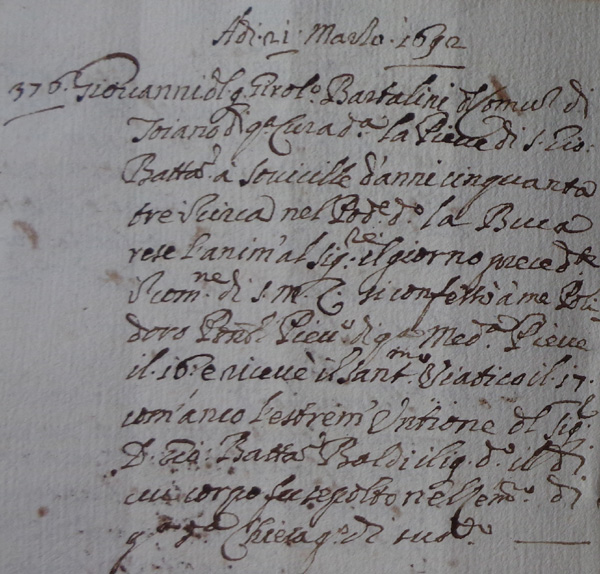 Adi. 21. Marzo. 1692
376. Giovanni dl q. Girol.o Bartalini dl Comun di
Toiano di q.a Cura d.a la Pieve di S. Gio:
Batta.a a Sovicille d'anni cinquanta
tre circa nel Pod.e d.o la Buca
rese l'anim'al Sig.re il giorno preced.te
in com.ne di S. M. C. si confessò à me Poli
doro Pieu.o di q.a Med.a Pieve
il 16. e riceuè il Sant.mo Viatico il 17.
com'anco l'estrem'Untione dl Sig.e
D. Gio: Batta.a Baldi il 19. d.o il di
cui corpo fu sepolto nel Cem.o di
q.a Chiesa q.o di sud.o